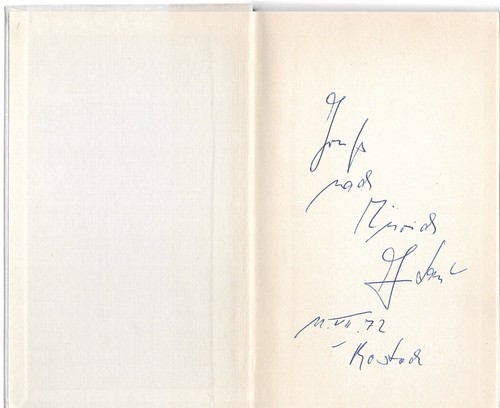 Gruß
nach
Zürich
H Kant
11. VII. 72
Rostock